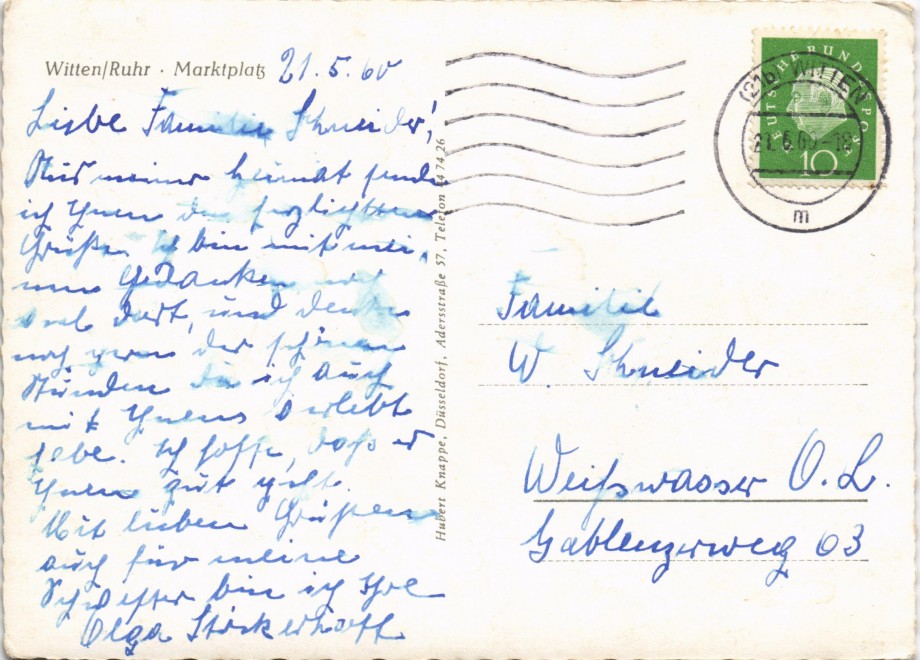 Witten/Ruhr · Marktplatz 21.5.60
Liebe Familie Schneider!
Aus meiner Heimat sende
ich Ihnen die herzlichsten
Grüße. Ich bin mit mei-
nen Gedanken oft
dort, und denke
noch gern der schönen
Stunden die ich auch
mit Ihnen verlebt
habe. Ich hoffe, daß es
Ihnen gut geht.
Mit lieben Grüßen
auch für meine
Schwester bin ich Ihre
Olga Störkerhoff
Hubert Knappe, Düsseldorf, Adersstraße 57, Telefon 1 74 26
DEUTSCHE BUNDESPOST
10
(21b) WITTEN
21.5.60-18
m
Familie
W. Schneider
Weißwasser O.L.
Gablenzerweg 63